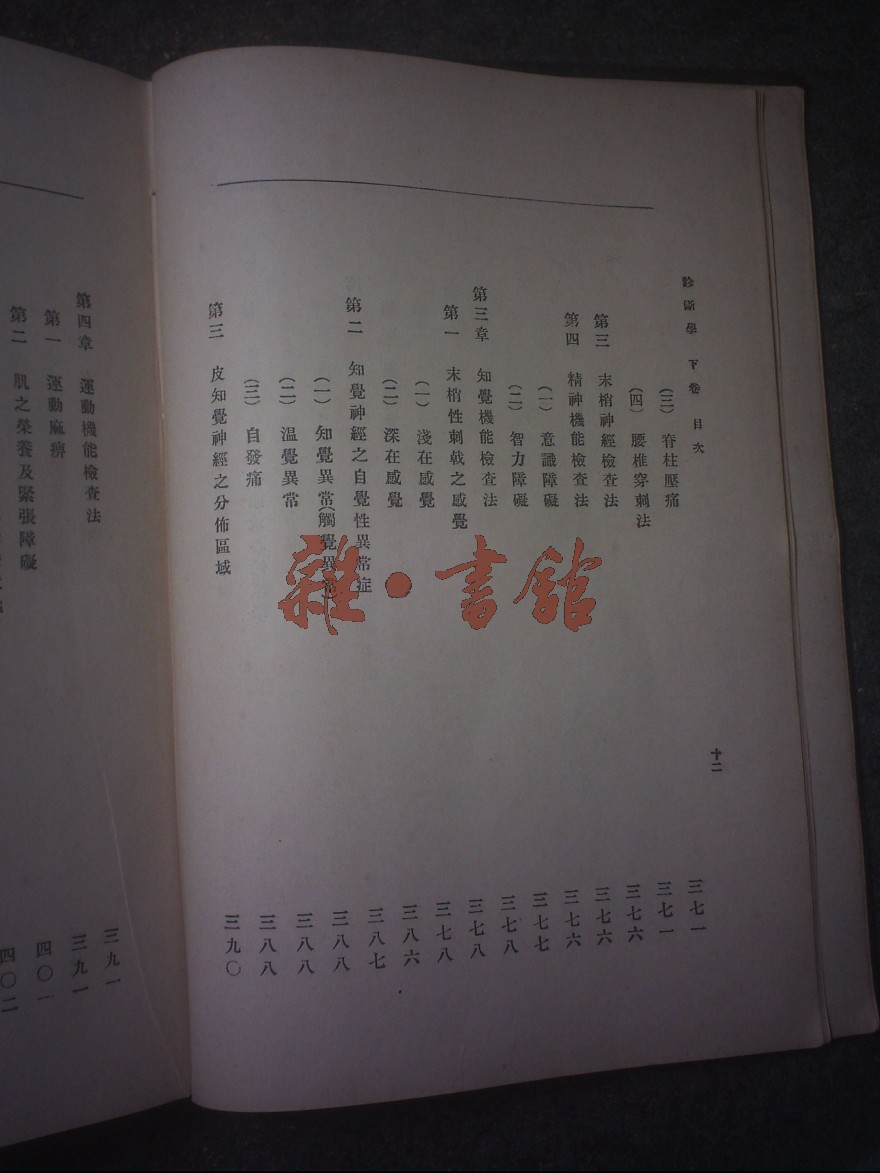 診斷學 下卷 目次 十二
(三) 脊柱壓痛 三七一
(四) 腰椎穿刺法 三七一
第三 末梢神經檢查法 三七六
第四 精神機能檢查法 三七六
(一) 意識障礙 三七六
(二) 智力障礙 三七七
第三章 知覺機能檢查法 三七八
第一 末梢性刺戟之感覺 三七八
(一) 淺在感覺 三七八
(二) 深在感覺 三八六
第二 知覺神經之自覺性異常症 三八七
(一) 知覺異常(觸覺異常) 三八八
(二) 温覺異常 三八八
(三) 自發痛 三八八
第三 皮知覺神經之分佈區域 三九〇
第四章 運動機能檢查法 三九一
第一 運動麻痹 三九一
第二 肌之榮養及緊張障礙 四〇一
四〇二
雜·書館